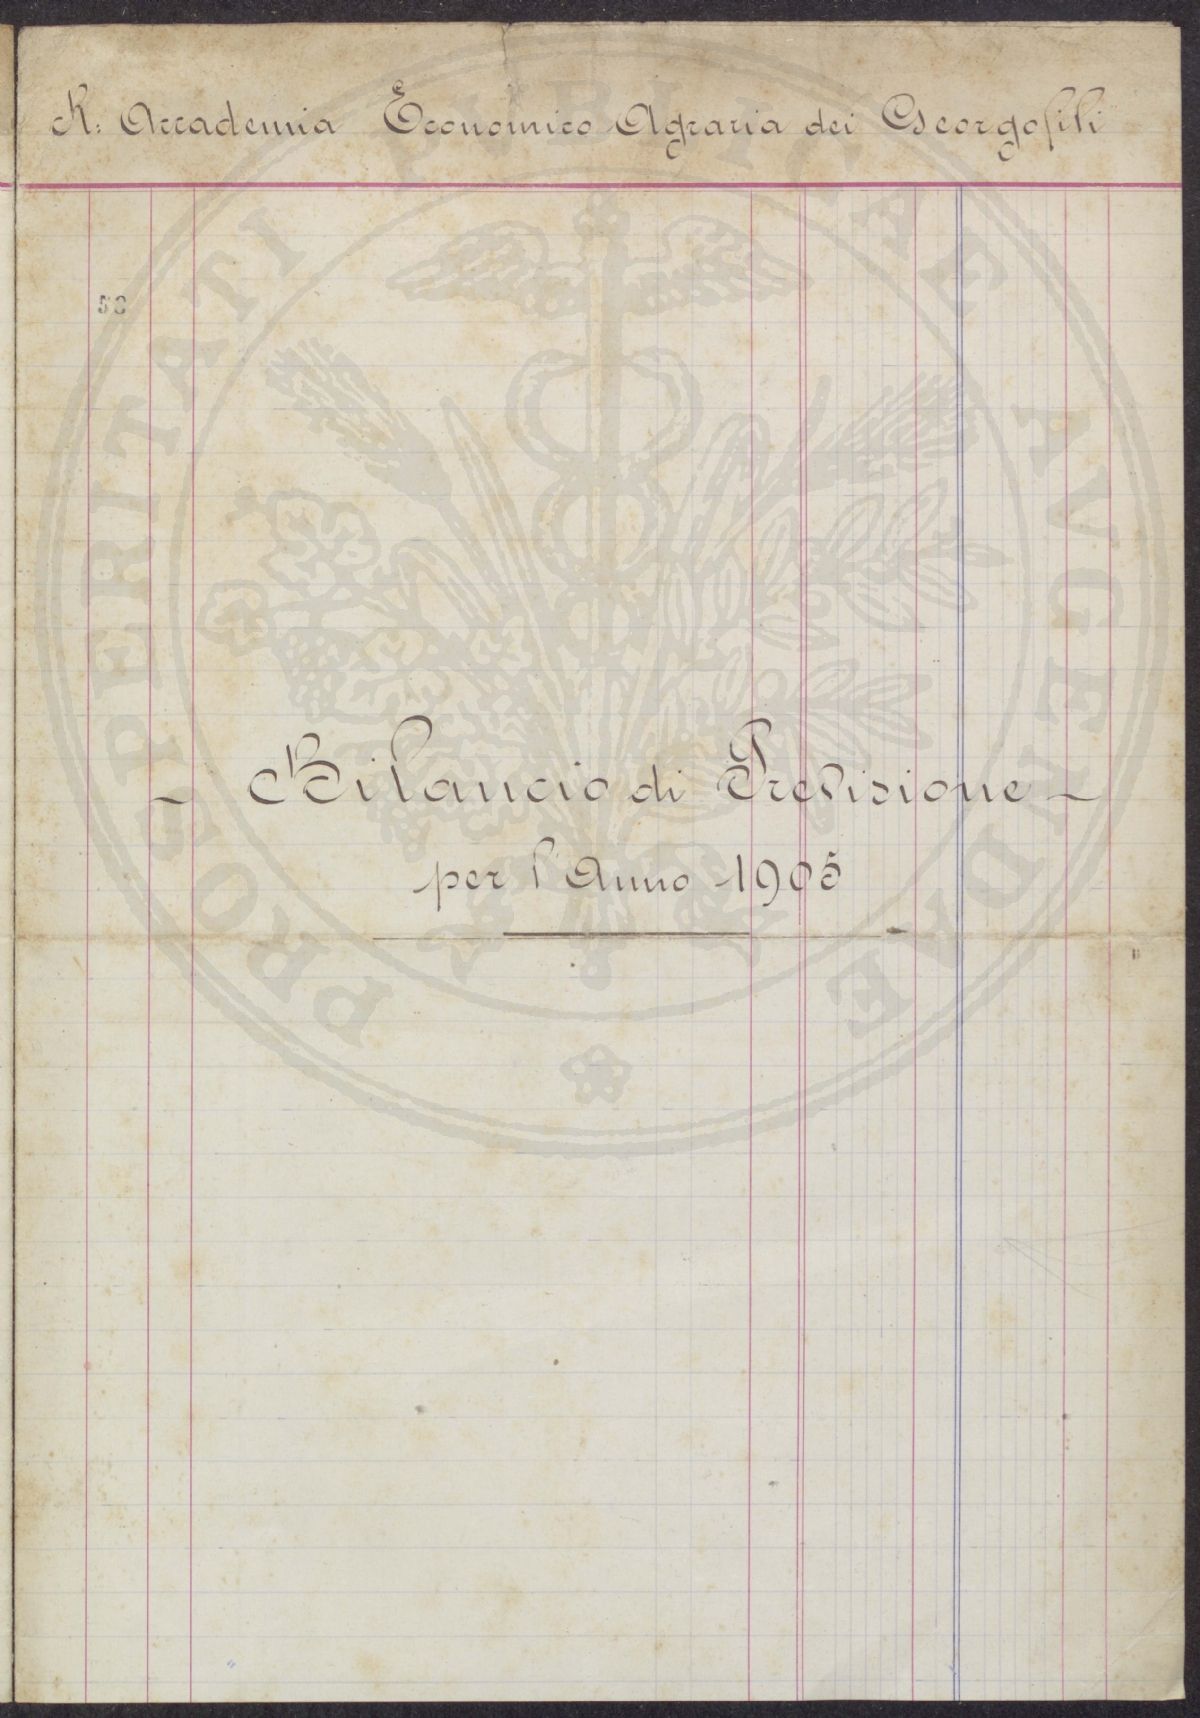 R: Accademia Economico Agraria dei Georgofili
- Bilancio di Previsione -
per l'Anno 1905
PROSPERITATI PUBLICAE AVGENDAE